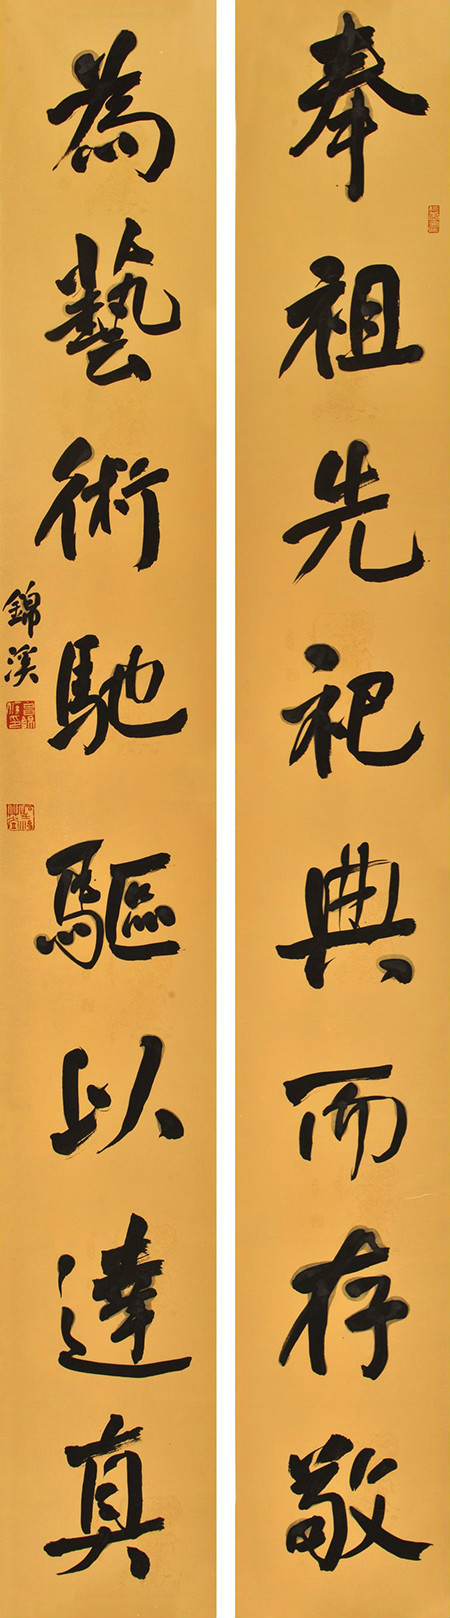 奉祖先祀典而存敬
為藝術馳驅以達真
錦溪